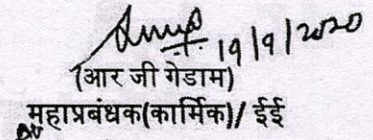 19/9/2020
(आर जी गेडाम)
महाप्रबंधक(कार्मिक)/ ईई